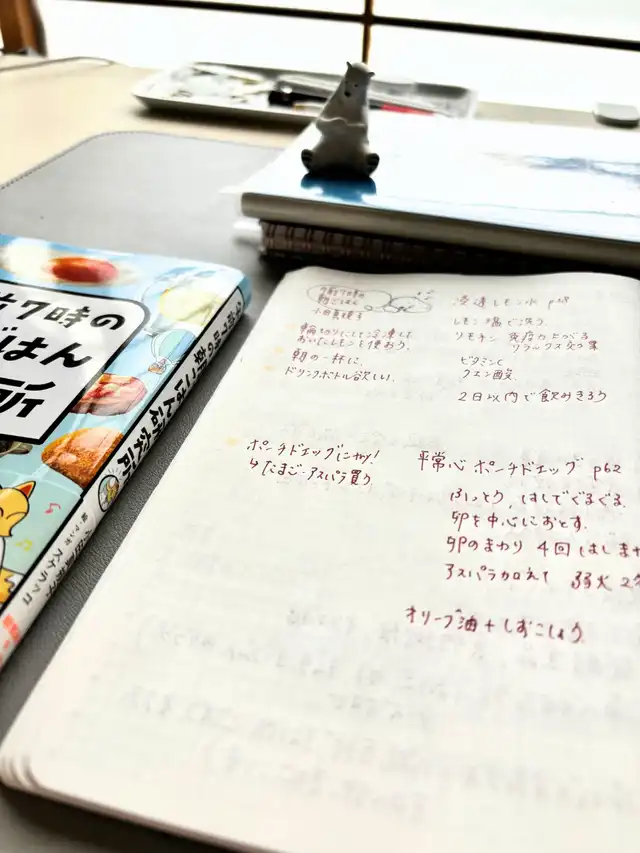 7時の
ごはん
所
午前7時の
朝ごはん
小田真規子
輪切りにして冷凍して
おいたレモンを使おう。
朝の一杯に。
ドリンクボトル欲しい。
ポーチドエッグにトライ!
↳たまご・アスパラ買う
浸透レモン水 p58
レモン 塩で洗う。
リモネン
リラックス効果
ビタミンC
クエン酸
2日以内で飲みきろう
平常心 ポーチドエッグ p62
ふっとう、はしでぐるぐる
卵を中心におとす。
卵のまわり 4回 はし
アスパラ加えて 弱火 2
オリーブ油+しおこしょう